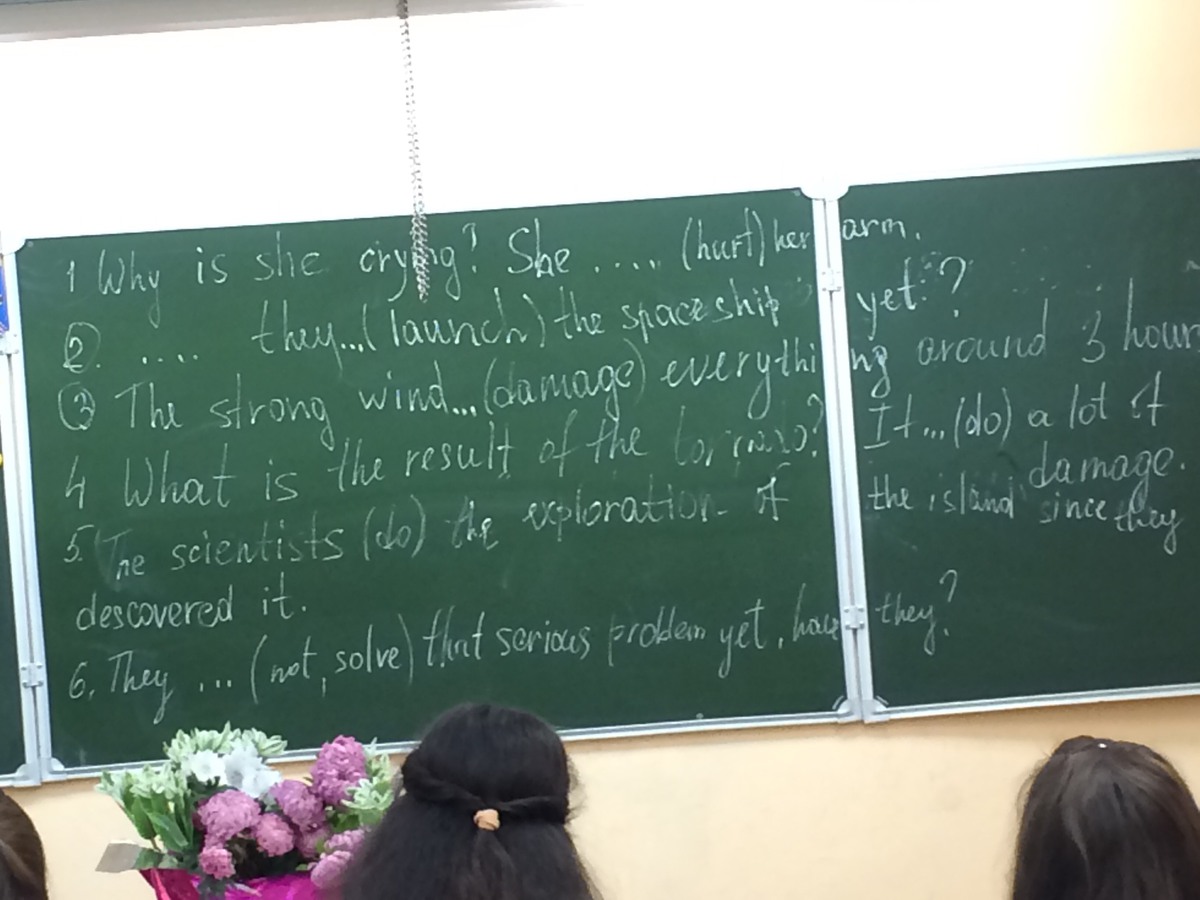 1 Why is she crying? She ..... (hurt) her arm.
2. .... they...(launch) the spaceship yet?
3 The strong wind...(damage) everything around 3 hours
4 What is the result of the tornado? It...(do) a lot of damage.
5. The scientists (do) the exploration of the island since they
descovered it.
6. They ... (not, solve) that serious problem yet, have they?